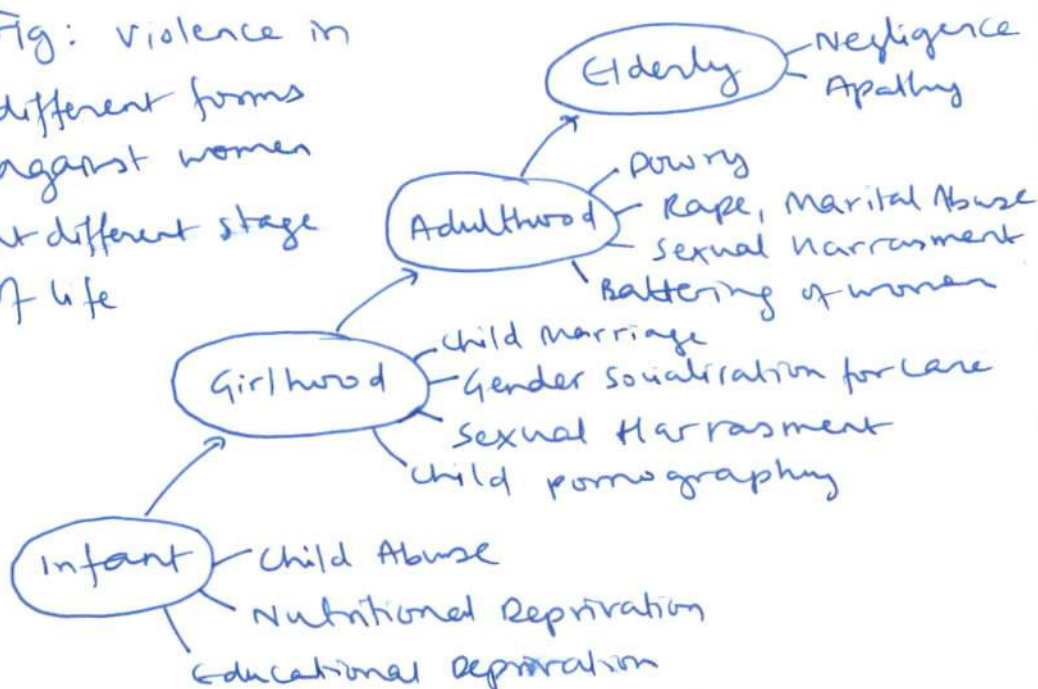 Fig: Violence in
different forms
against women
at different stage
of life
Elderly
Negligence
Apathy
Adulthood
Dowry
Rape, Marital Abuse
Sexual Harrasment
Battering of women
Girlhood
Child Marriage
Gender Socialisation for care
Sexual Harrasment
Child pornography
Infant
Child Abuse
Nutritional Deprivation
Educational Deprivation